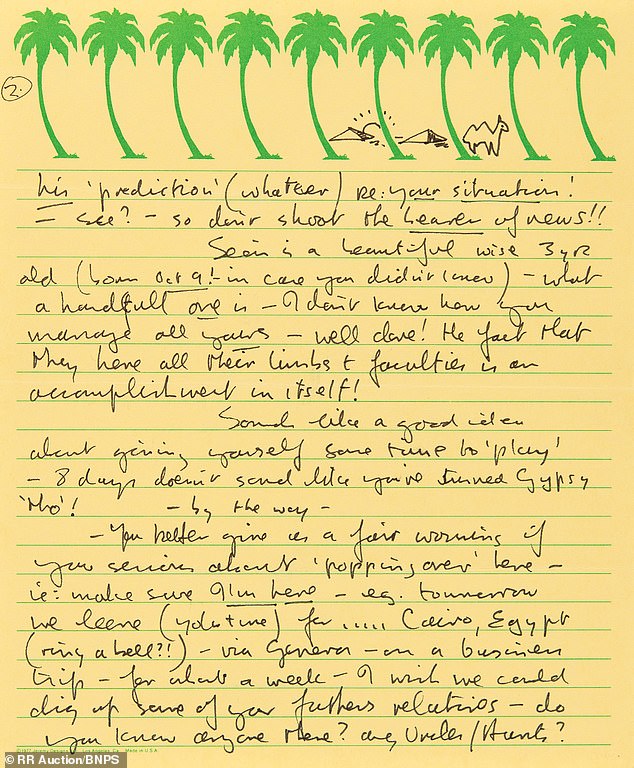 2.
his 'prediction' (whatever) re: your situation!
= see? - so don't shoot the bearer of news!!
Sean is a beautiful wise 3 yr
old (born Oct 9! in case you didn't know) - what
a handfull one is - I don't know how you
manage all yours - well done! The fact that
they have all their limbs & faculties is an
accomplishment in itself!
Sounds like a good idea
about giving yourself some time to 'play'
- 8 days doesn't sound like you've turned Gypsy
'tho'! - by the way -
- You better give us a fair warning if
your serious about 'popping over' here -
ie: make sure I'm here - eg. tomorrow
we leave for ..... Cairo, Egypt
(ring a bell?!) - via Geneva - on a business
trip - for about a week - I wish we could
dig up some of your fathers relatives - do
you know anyone there? any Uncles/Aunts?
Made in U.S.A.
© RR Auction/BNPS